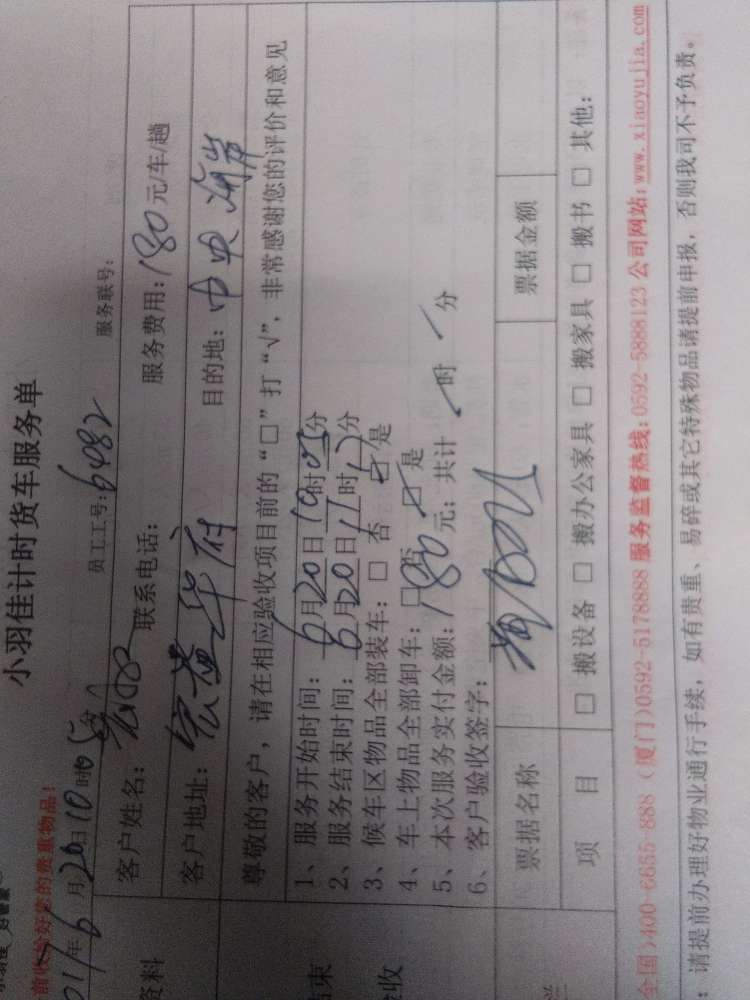 小羽佳计时货车服务单
前收拾好您的贵重物品!
年6月20日10时05分
员工工号:6482
服务联号:
客户姓名:
联系电话:
服务费用:180元/车/趟
客户地址:宏益华府
目的地:中央海岸
尊敬的客户,请在相应验收项目前的“□”打“√”,非常感谢您的评价和意见
1、服务开始时间:6月20日10时05分
2、服务结束时间:6月20日11时17分
3、候车区物品全部装车:□ 否 ☑ 是
4、车上物品全部卸车:□ 否 ☑ 是
5、本次服务实付金额:180元;共计 时 分
6、客户验收签字:
票据名称 票据金额
项 目 □ 搬设备 □ 搬办公家具 □ 搬家具 □ 搬书 □ 其他:
全国)400-6655-888 (厦门)0592-5178888 服务监督热线:0592-5888123 公司网站:www.xiaoyujia.com
:请提前办理好物业通行手续,如有贵重、易碎或其它特殊物品请提前申报,否则我司不予负责。